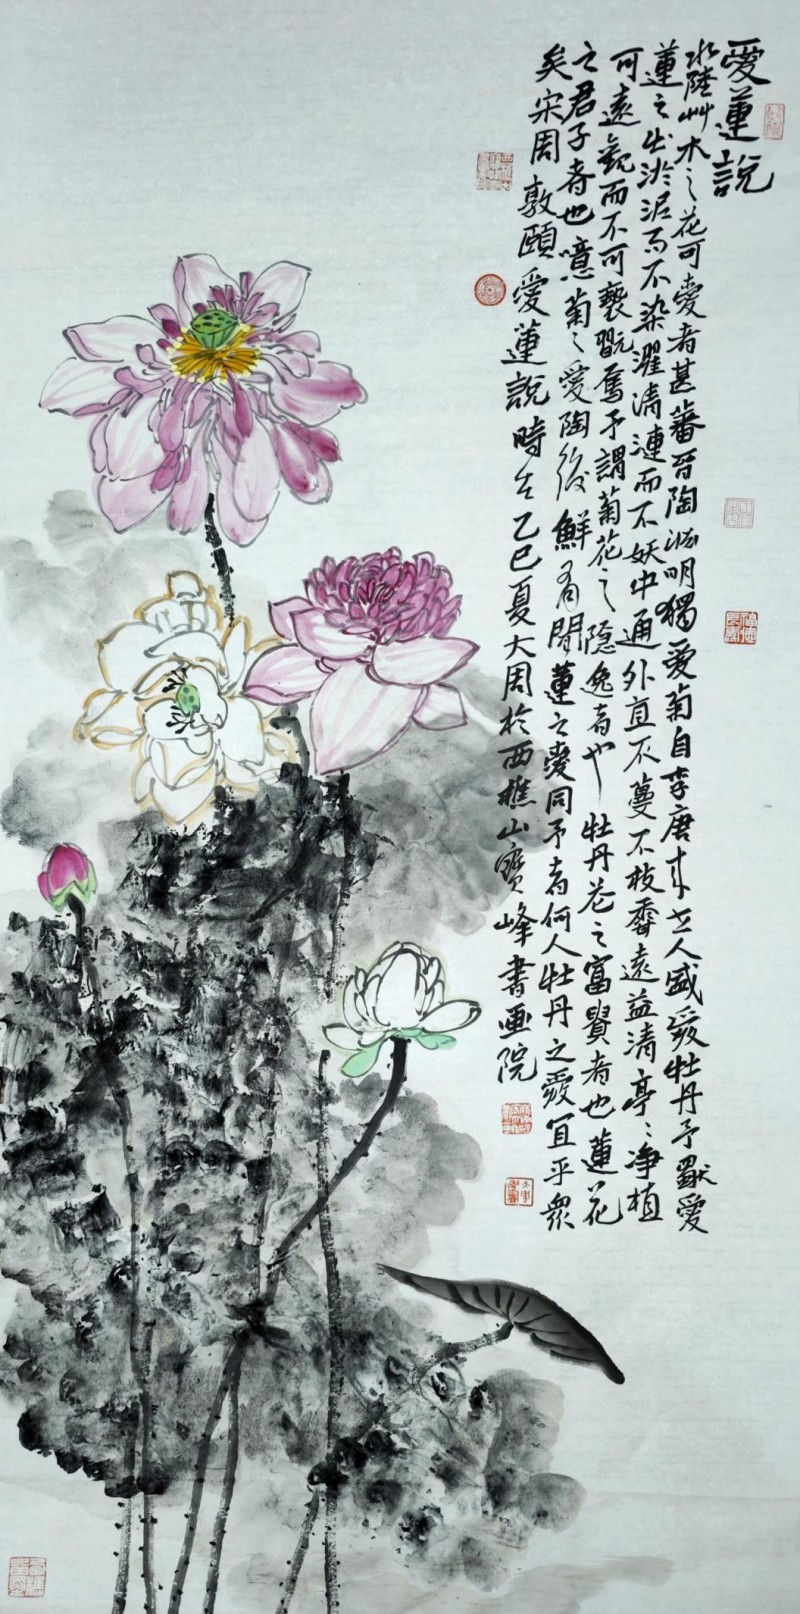 愛蓮説
水陸艸木之花可愛者甚蕃晉陶淵明獨愛菊自李唐来世人盛愛牡丹予獨愛
蓮之出淤泥而不染濯清漣而不妖中通外直不蔓不枝香遠益清亭〻净植
可遠觀而不可褻翫焉予謂菊花之隠逸者也牡丹花之富貴者也蓮花
之君子者也噫菊之愛陶後鮮有聞蓮之愛同予者何人牡丹之愛宜乎衆
矣宋周敦頤愛蓮説時在乙巳夏大周於西樵山寶峰書画院